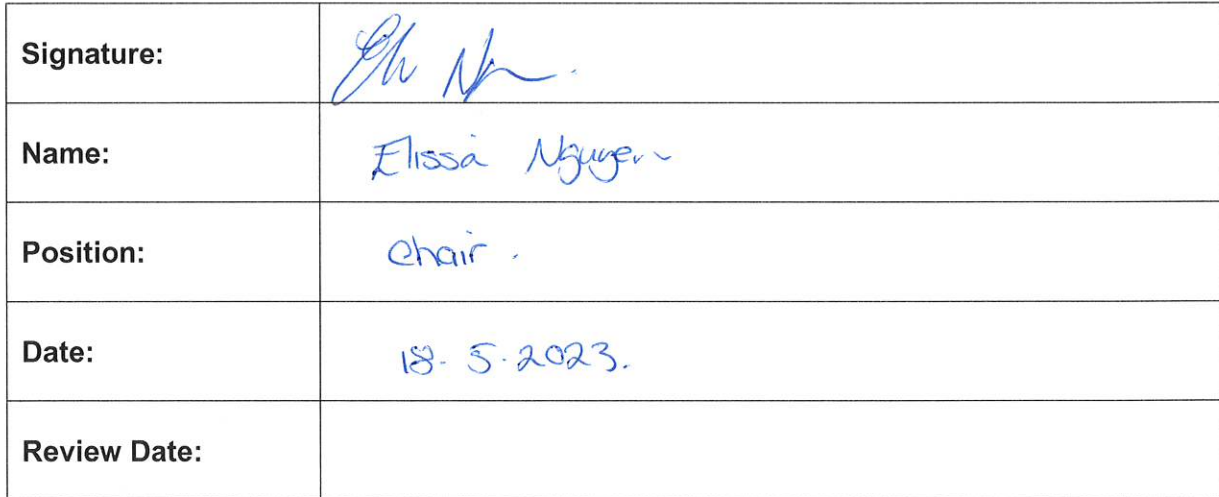 Signature:
Name: Elissa Nguyen
Position: Chair.
Date: 18.5.2023.
Review Date: